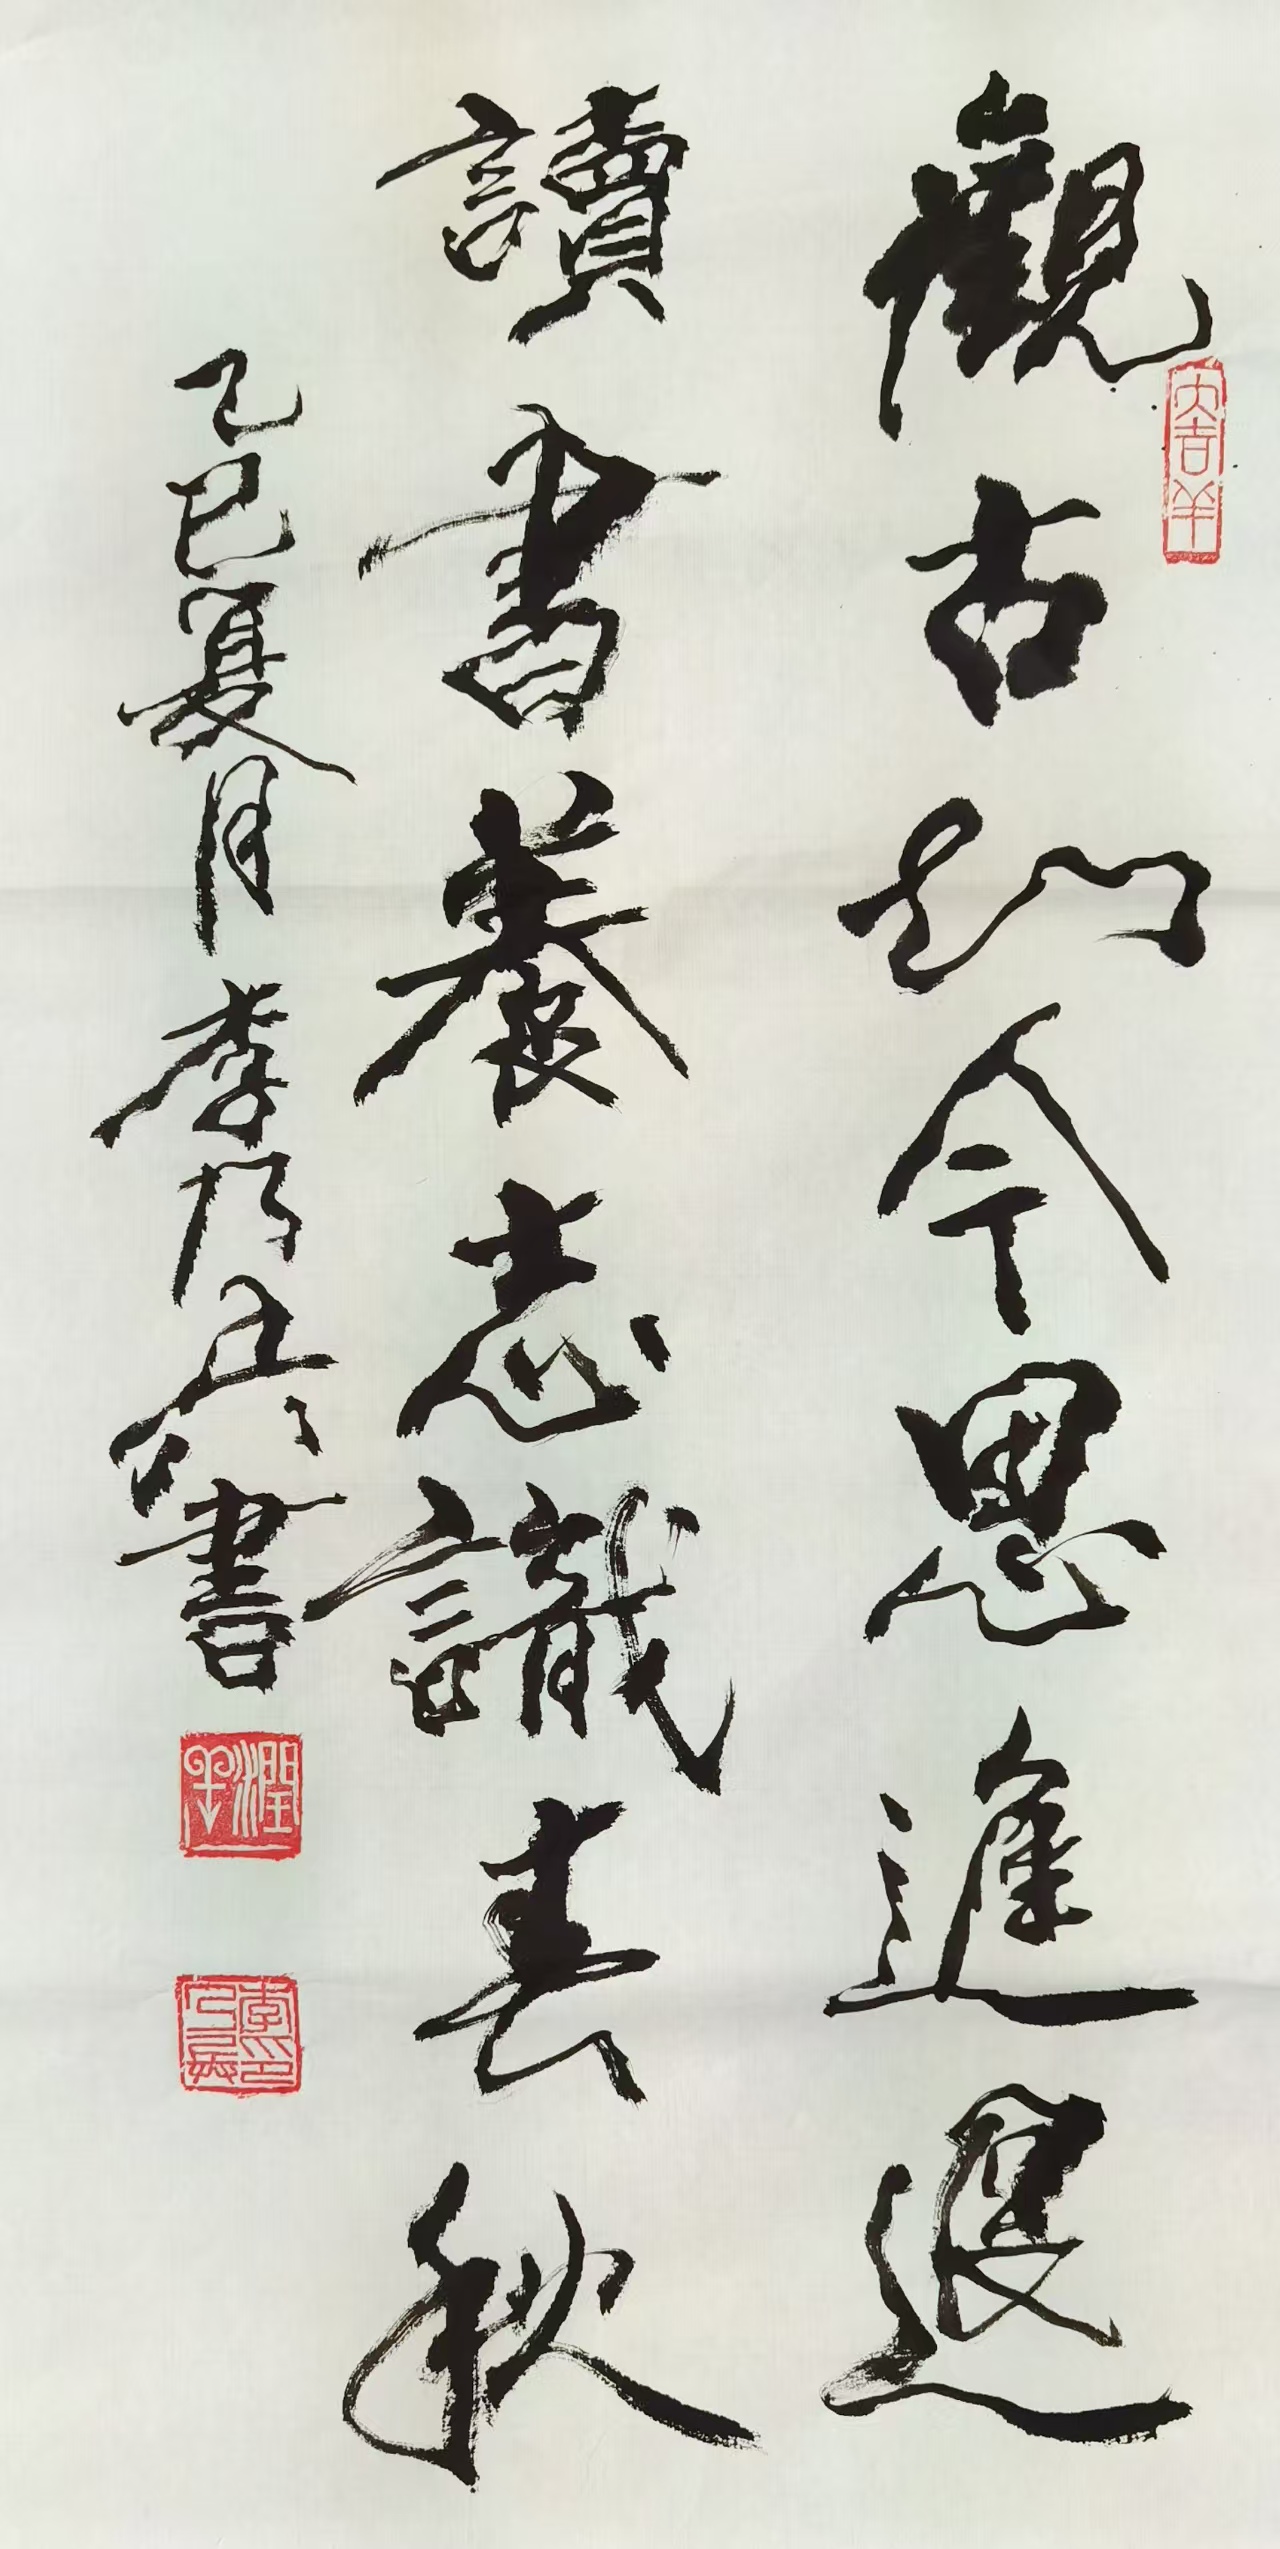 觀古知今思進退
讀書養志識春秋
乙巳夏月李乃兵書
大吉羊
潤墨